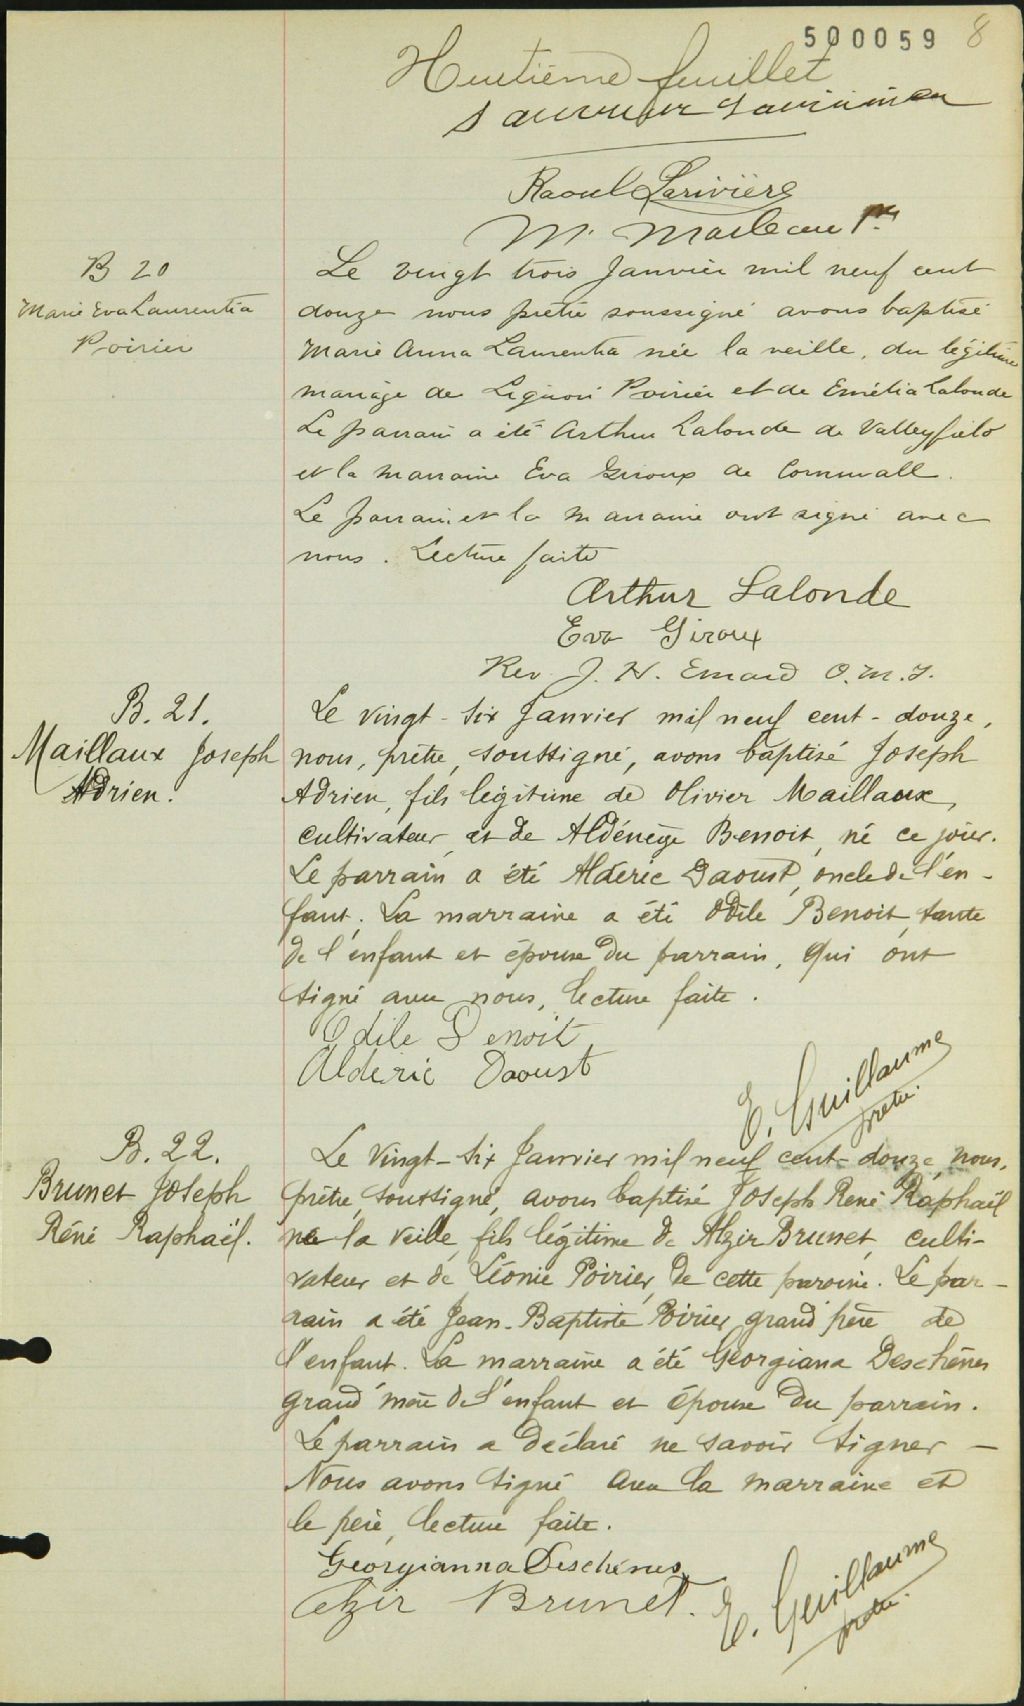 500059 8
Huitième feuillet
Raoul Larivière
M. Marleau Ptre
B 20
Marie Eva Laurentia
Poirier
Le vingt trois Janvier mil neuf cent
douze nous prêtre soussigné avons baptisé
Marie Anna Laurentia née la veille, du légitime
mariage de Liguori Poirier et de Emélia Lalonde
Le parrain a été Arthur Lalonde de Valleyfield
et la marraine Eva Giroux de Cornwall.
Le parrain et la marraine ont signé avec
nous. Lecture faite
Arthur Lalonde
Eva Giroux
Rev J. H. Emard O.M.I.
B. 21.
Maillaux Joseph
Adrien.
Le vingt-six Janvier mil neuf cent-douze,
nous, prêtre, soussigné, avons baptisé Joseph
Adrien, fils légitime de Olivier Maillaux,
cultivateur, et de Aldénège Benoit, né ce jour.
Le parrain a été Aldéric Daoust, oncle de l'en-
fant. La marraine a été Odile Benoit, tante
de l'enfant et épouse du parrain, qui ont
signé avec nous, lecture faite.
Odile Benoit
Alderic Daoust
E. Guillaume
prêtre.
B. 22.
Brunet Joseph
Réné Raphaël.
Le vingt-six Janvier mil neuf cent-douze, nous,
prêtre, soussigné, avons baptisé Joseph René Raphaël
né la veille, fils légitime de Alzir Brunet, culti-
vateur et de Léonie Poirier, de cette paroisse. Le par-
rain a été Jean-Baptiste Poirier, grand'père de
l'enfant. La marraine a été Georgiana Deschênes
grand'mère de l'enfant et épouse du parrain.
Le parrain a déclaré ne savoir signer —
Nous avons signé avec la marraine et
le père, lecture faite.
Georgianna Deschênes
Alzir Brunet.
E. Guillaume
prêtre.